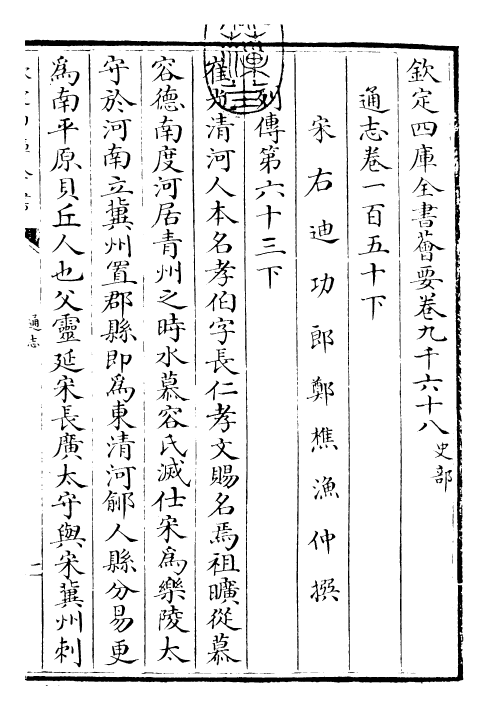 欽定四庫全書薈要卷九千六十八史部
通志卷一百五十下
宋右迪功郎鄭樵漁仲撰
列傳第六十三下
崔光清河人本名孝伯字長仁孝文賜名焉祖曠從慕
容德南度河居青州之時水慕容氏滅仕宋為樂陵太
守於河南立冀州置郡縣即為東清河鄃人縣分易更
為南平原貝丘人也父靈延宋長廣太守與宋冀州刺
通志